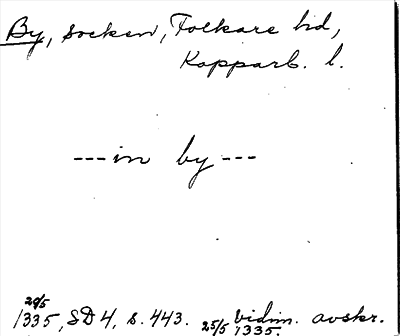 By, socken, Folkare hd,
Kopparb. l.
---in by---
29/5
1335, SD 4, s. 443. 25/5 vidim. avskr.
1335.